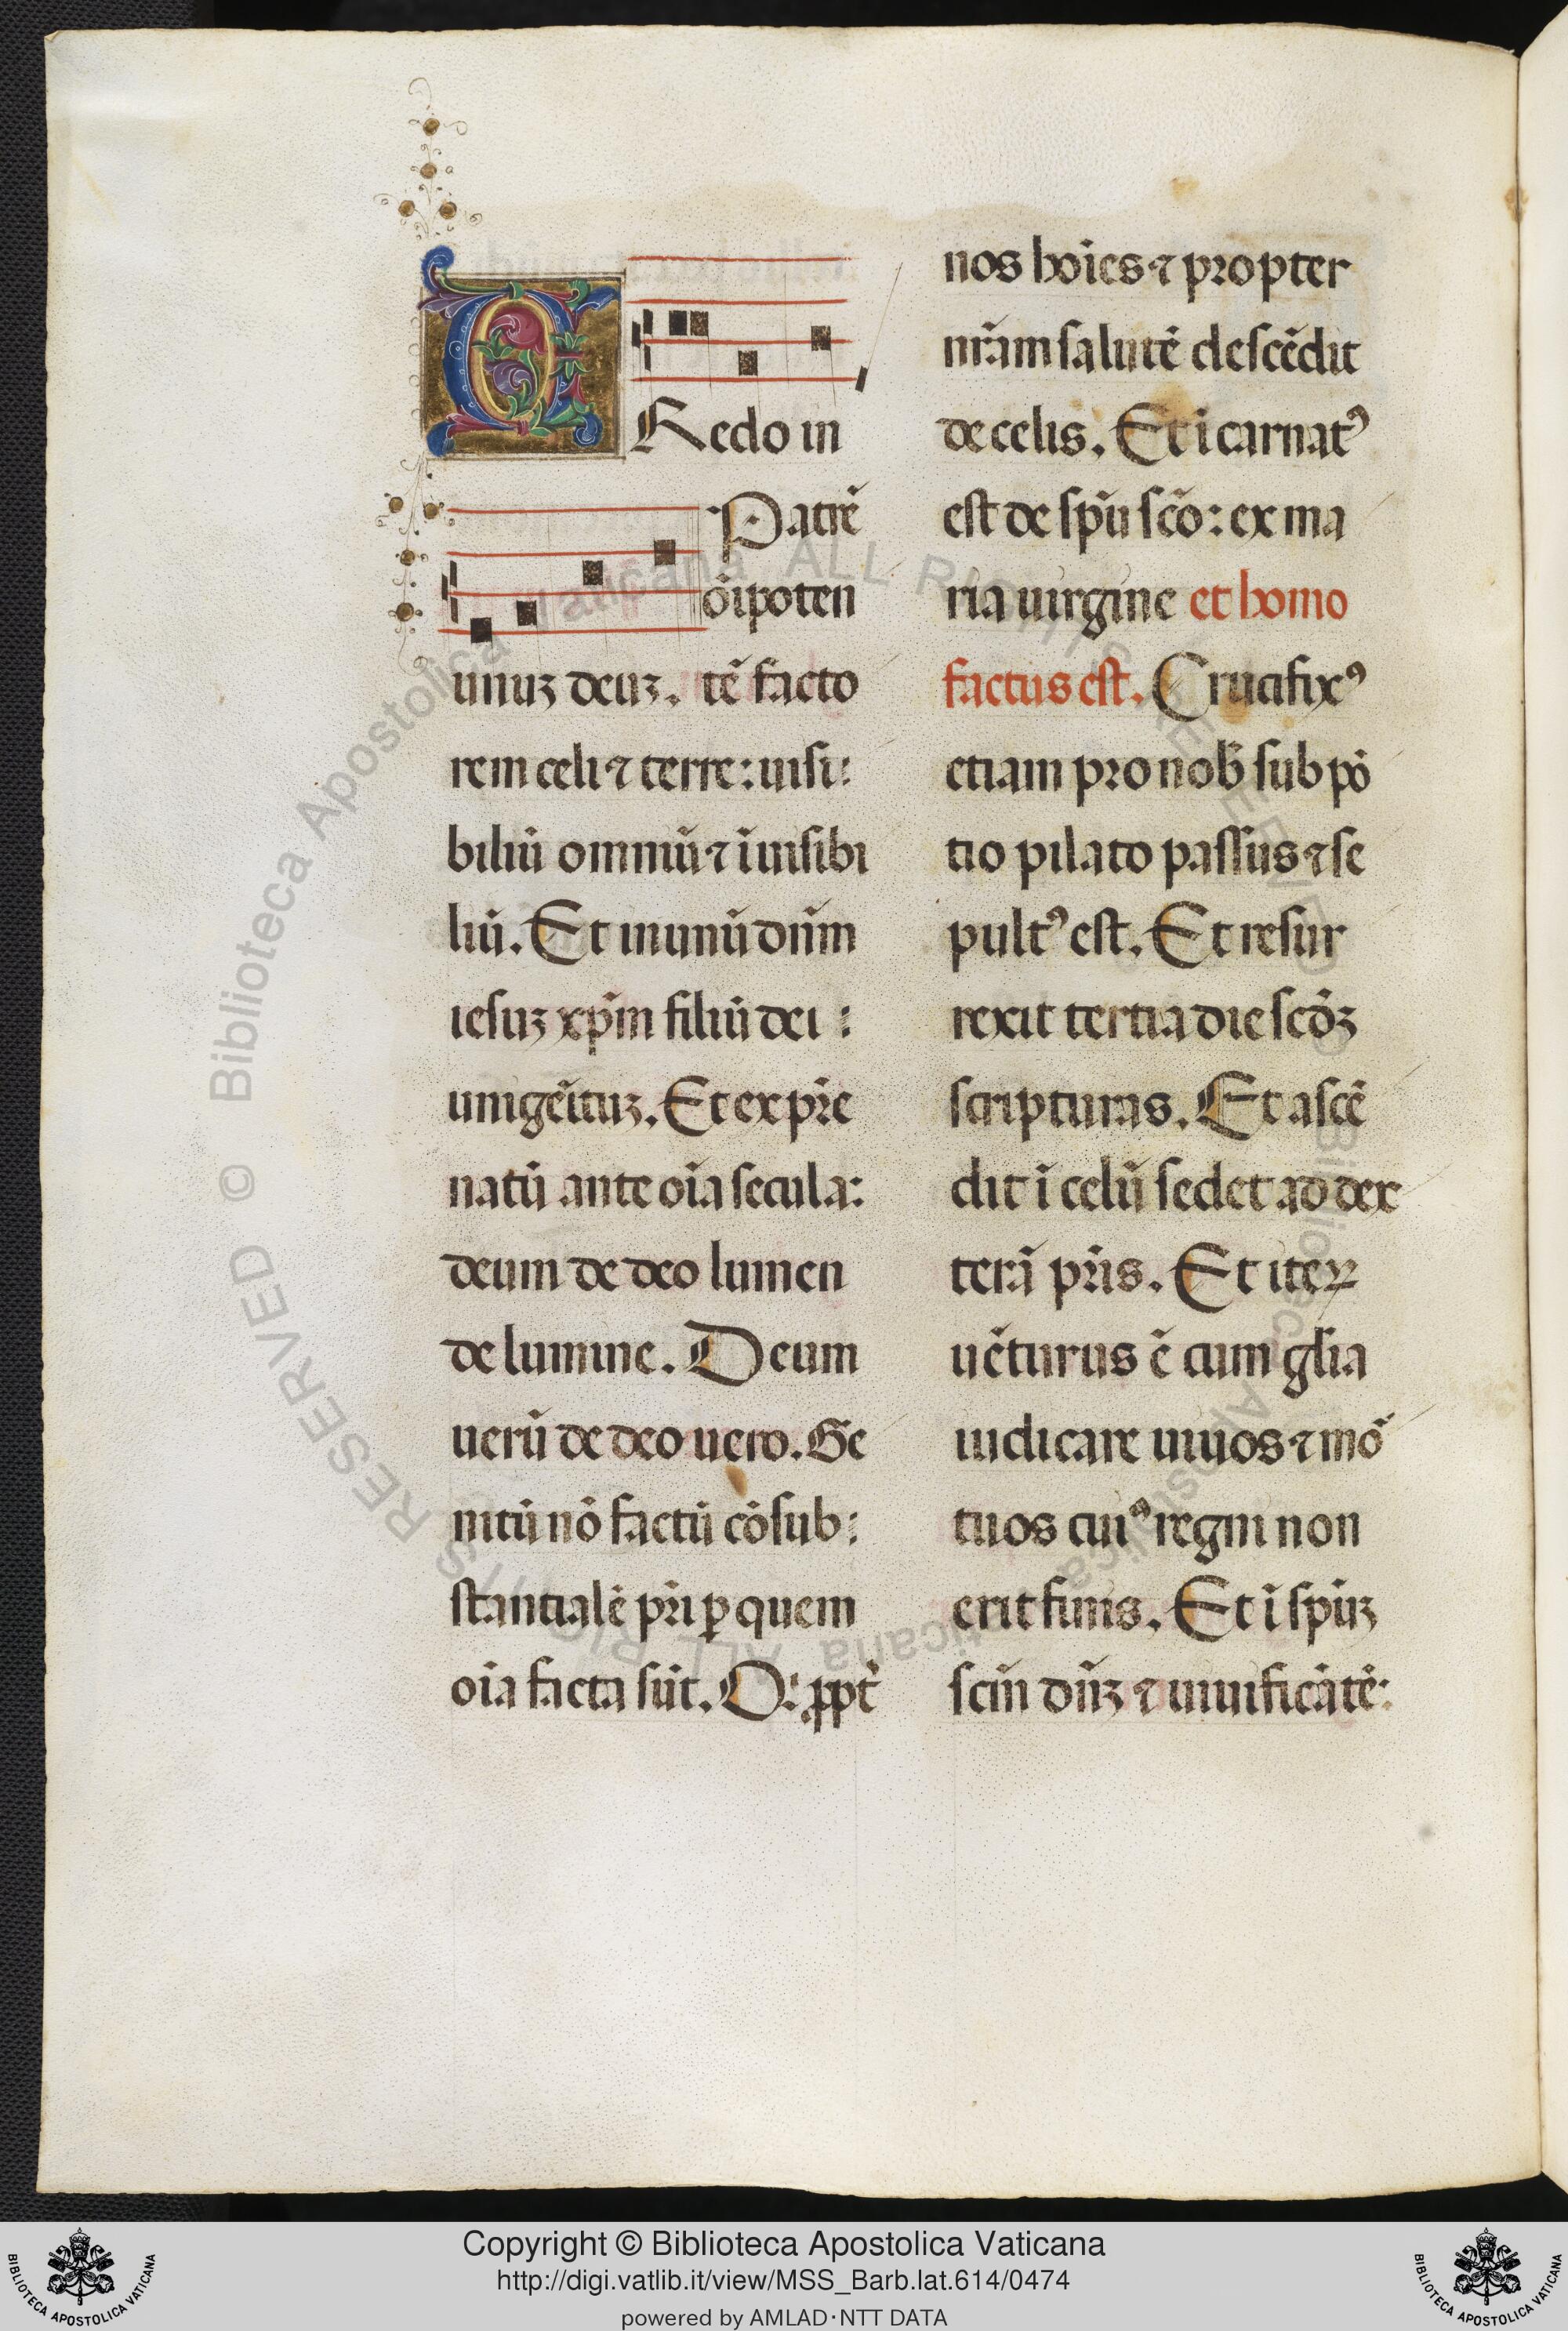 CRedo in
unuꝫ deuꝫ.
Patrē
oı̄poten
tē facto
rem celi ⁊ terre: uisi:
biliū omniū ⁊ īuisibi
liū. Et in unū dn̄m
iesuꝫ xp̄m filiū dei :
unigēituꝫ. Et ex pr̄e
natū ante oı̄a secula:
deum de deo lumen
de lumine. Deum
uerū de deo uero. Ge
nitū nō factū cōsub:
stantialē pr̄i ꝑ quem
oı̄a facta sūt. Q: ꝓpt̄
nos hoı̄es ⁊ propter
nr̄am salutē descēdit
de celis. Et icarnatꝰ
est de sp̄u scō: ex ma
ria uirgine et homo
factus est. Crucifixꝰ
etiam pro nob̄ sub pō
tio pilato passus ⁊ se
pultꝰ est. Et resur
rexit tertia die scd̄ꝫ
scripturas. Et ascē
dit ī celū sedet ad dex
terā pr̄is. Et iteꝝ
uēturus ē cum gl̄ia
iudicare uiuos ⁊ mō
tuos cuiꝰ regni non
erit finis. Et ī spūꝫ
scm̄ dn̄ꝫ ⁊ uiuificātē:
© Biblioteca Apostolica Vaticana ALL RIGHTS RESERVED
Copyright © Biblioteca Apostolica Vaticana
http://digi.vatlib.it/view/MSS_Barb.lat.614/0474
powered by AMLAD·NTT DATA
BIBLIOTECA APOSTOLICA VATICANA
BIBLIOTECA APOSTOLICA VATICANA